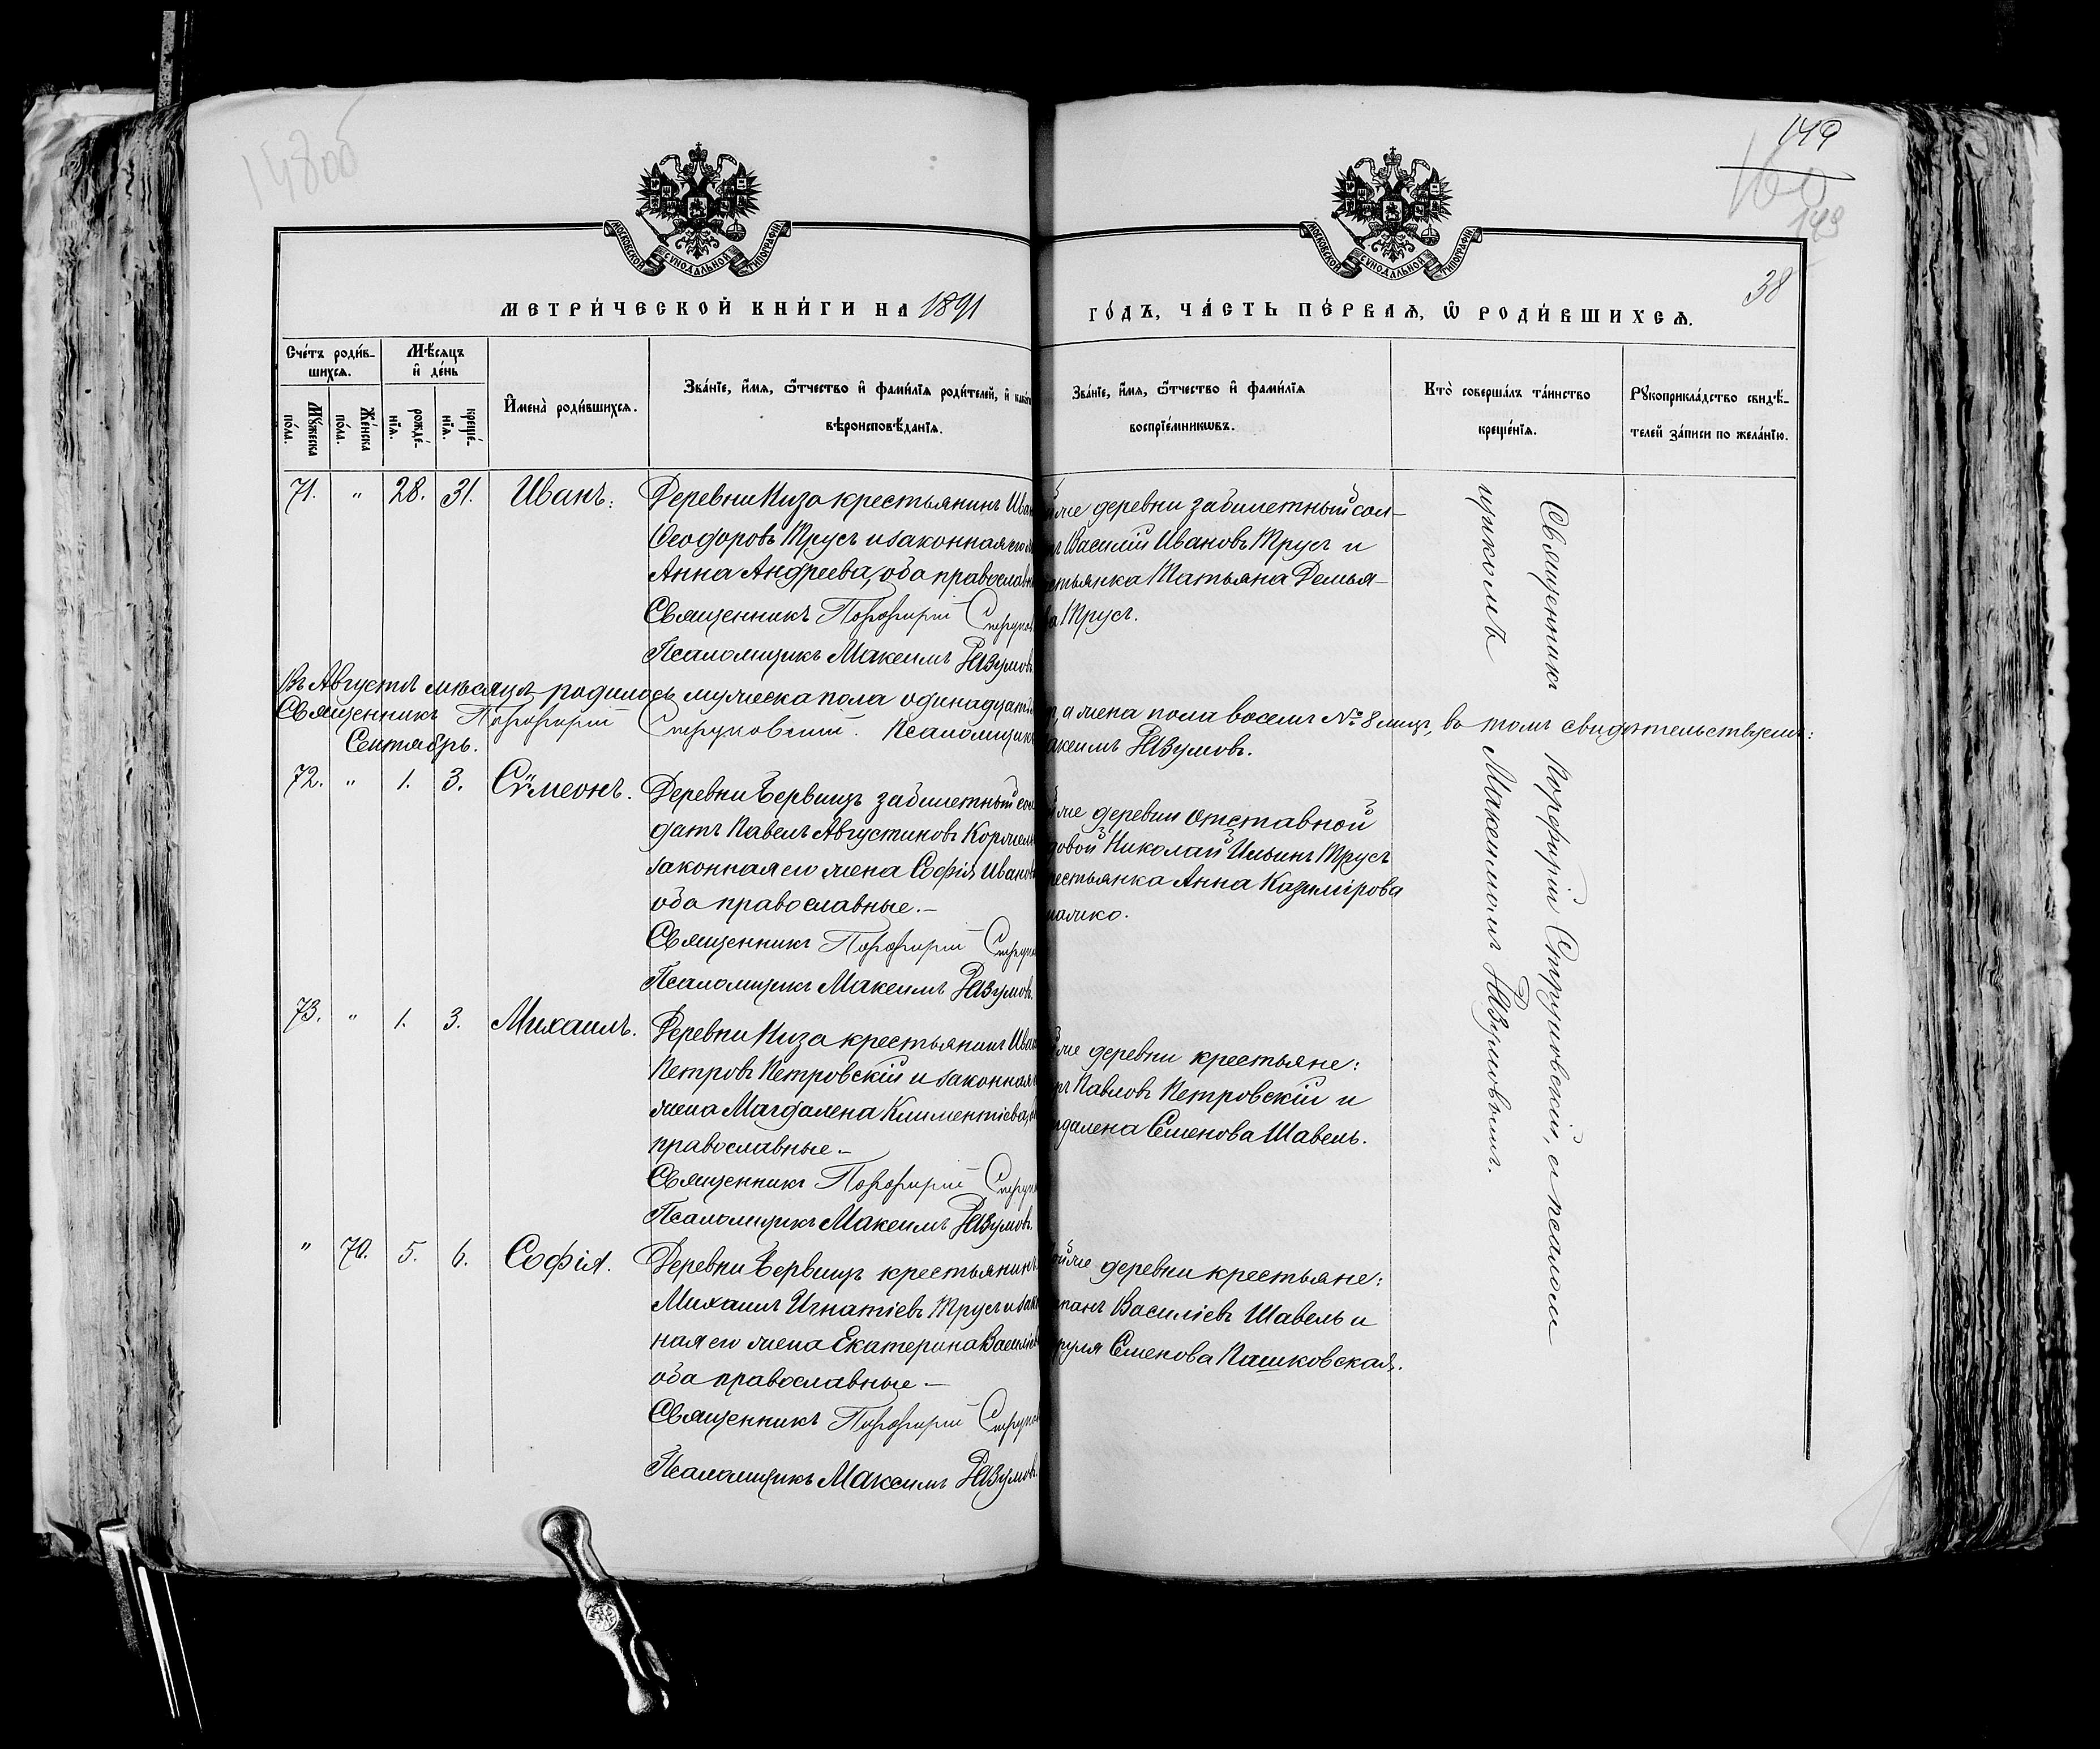 148об
149
160
149
38
МОСКОВСКОЙ СѴНОДАЛЬНОЙ ТИПОГРАФІИ
МОСКОВСКОЙ СѴНОДАЛЬНОЙ ТИПОГРАФІИ
МЕТРИ́ЧЕСКОЙ КНИ́ГИ НА 1891
ГО́ДЪ, ЧА́СТЬ ПЕ́РВАѦ, Ѡ҆ РОДИ́ВШИХСѦ.
Сче́тъ роди́в-
шихсѧ.
Мѣ́сѧцъ
и҆ де́нь
Мꙋ́жеска
по́ла.
Же́нска
по́ла.
рожде́-
нїѧ.
креще́-
нїѧ.
И҆мена̀ роди́вшихсѧ.
Зва́нїе, и҆́мѧ, ѻ҆́тчество и҆ фами́лїѧ роди́телей, и҆
вѣроисповѣ́данїѧ.
Зва́нїе, и҆́мѧ, ѻ҆́тчество и҆ фами́лїѧ
воспрїе́мникѡвъ.
Кто̀ соверша́лъ та́инство
креще́нїѧ.
Рꙋкоприкла́дство свидѣ́-
телей за́писи по жела́нїю.
71. " 28. 31. Иванъ: Деревни Низа крестьянинъ Иван
Ѳеодоровъ Трусъ и законная его
Анна Андреева, оба православн
Священникъ Порфирій Струков
Псаломщикъ Максимъ Разумов
же деревни забилетный сол-
Василій Ивановъ Трусъ и
стьянка Татьяна Демья-
ва Трусъ.
Въ Августѣ мѣсяцѣ родилось мужеска пола одинадцать
, а жена пола восемь № 8 лицъ, въ томъ свидѣтельствуемъ:
Священникъ Порфирій Струковскій. Псаломщикъ
аксимъ Разумовъ.
Сентябрь.
72. " 1. 3. Сѵмеонъ. Деревни забилетный сол
датъ Павелъ Августиновъ
законная его жена Софія Иванов
оба православные.—
Священникъ Порфирій Струко
Псаломщикъ Максимъ Разумовъ.
же деревни отставной
довой Николай Ильинъ Трусъ
рестьянка Анна Казимірова
73. " 1. 3. Михаилъ. Деревни Низа крестьянинъ Иван
Петровъ Петровскій и законная
жена Магдалена Климентіева,
православные.—
Священникъ Порфирій Струк
Псаломщикъ Максимъ Разумовъ.
же деревни крестьяне:
Павловъ Петровскій и
гдалена Семенова Шавель.
" 70. 5. 6. Софія. Деревни крестьянинъ
Михаилъ Игнатіевъ Трусъ и зако
ная его жена Екатерина Василіев
оба православные—
Священникъ Порфирій Струков
Псаломщикъ Максимъ Разумов.
же деревни крестьяне:
Василіевъ Шавель и
Семенова Пашковская.
Священникъ Порфирій Струковскій, съ псалом
щикомъ Максимомъ Разумовымъ.